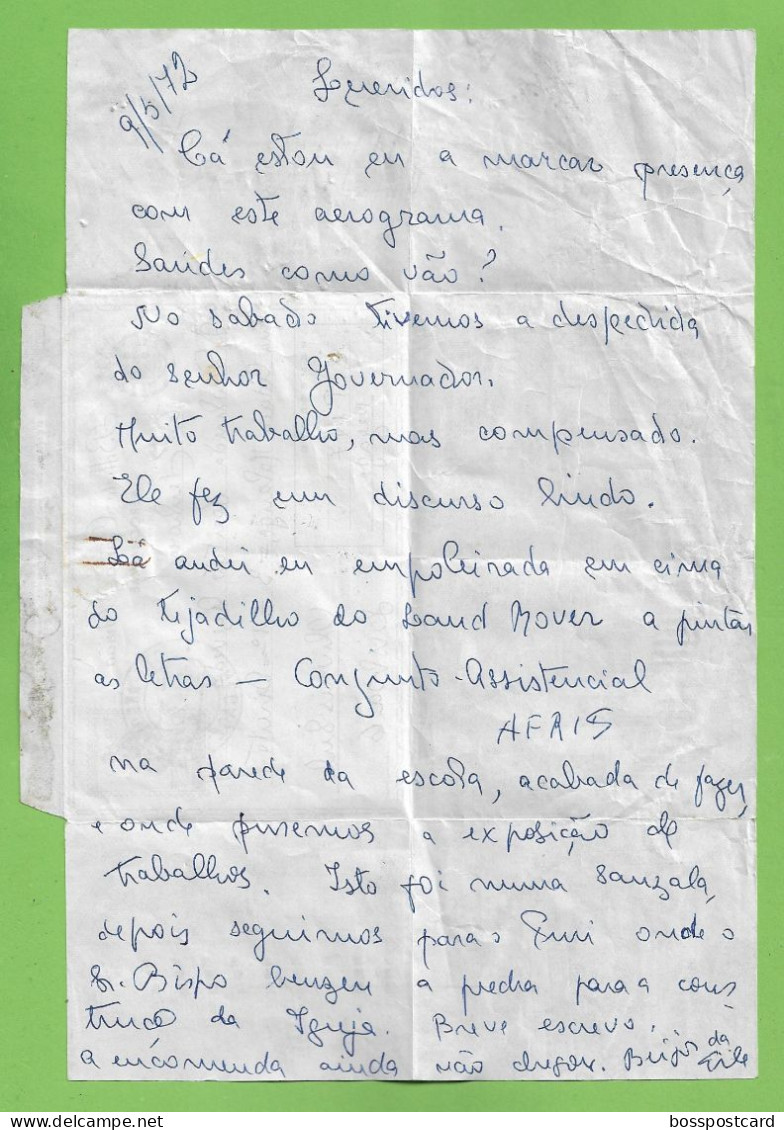 9/5/72
Queridos:
Cá estou eu a marcar presença
com este aerograma.
Saúdes como vão?
No sabado tivemos a despedida
do senhor Governador.
Muito trabalho, mas compensado.
Ele fez um discurso lindo.
Lá andei eu empoleirada em cima
do tijadilho do Land Rover a pintar
as letras — Conjunto Assistencial
AFAIS
na parede da escola, acabada de fazer,
e onde pusemos a exposição de
trabalhos. Isto foi numa sanzala,
depois seguimos para o onde o
Sr. Bispo benzeu a pedra para a cons
trução da Igreja. Breve escrevo.
a encomenda ainda não chegou. Beijos da
bosspostcard